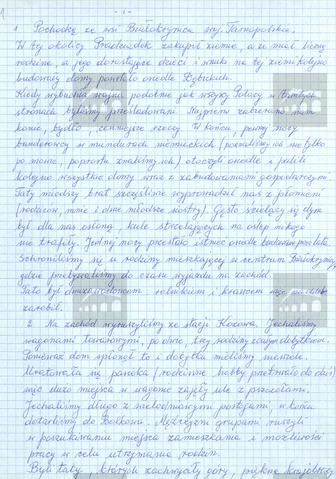 - 1 -
1 Pochodzę ze wsi Białokrynica woj. Tarnopolskie.
W tej okolicy Pradziadek zakupił ziemię, a że miał liczną
rodzinę, a jego dorastające dzieci i wnuki na tej ziemi kolejno
budowały domy, powstało osiedle Dębickich.
Kiedy wybuchła wojna podobnie jak wszyscy Polacy w tamtych
stronach byliśmy prześladowani. Najpierw zabierano nam
konie, bydło, cenniejsze rzeczy. W końcu, pewnej nocy
banderowcy w mundurach niemieckich (poznaliśmy ich nie tylko
po mowie, poprostu znaliśmy ich) otoczyli osiedle i palili
kolejno wszystkie domy wraz z zabudowaniami gospodarczymi.
Taty młodszy brat szczęśliwie wyprowadził nas z płomieni
(rodziców, mnie i dwie młodsze siostry). Gęsto ścielący się dym
był dla nas osłoną, kule strzelających na oślep nikogo
nie trafiły. Jednej nocy przestało istnieć osiedle
Schroniliśmy się u rodziny mieszkającej w centrum
gdzie przebywaliśmy do czasu wyjazdu na zachód.
Tato był rolnikiem i krawcem
zarobił.
2. Na zachód wyruszyliśmy ze stacji Jechaliśmy
wagonami towarowymi, po dwie, trzy rodziny z całym dobytkiem.
Ponieważ dom spłonął to i dobytku mieliśmy niewiele.
Uratowała się pasieka (rodzinne hobby przetrwało do dziś)
więc dużo miejsca w wagonie zajęły ule z pszczołami.
Jechaliśmy długo z wielodniowymi postojami, w końcu
dotarliśmy do Bolkowa. Mężczyźni grupami ruszyli
w poszukiwaniu miejsca zamieszkania i możliwości
pracy w celu utrzymania rodzin.
Byli tacy, których zachwyciły góry, piękne krajobrazy